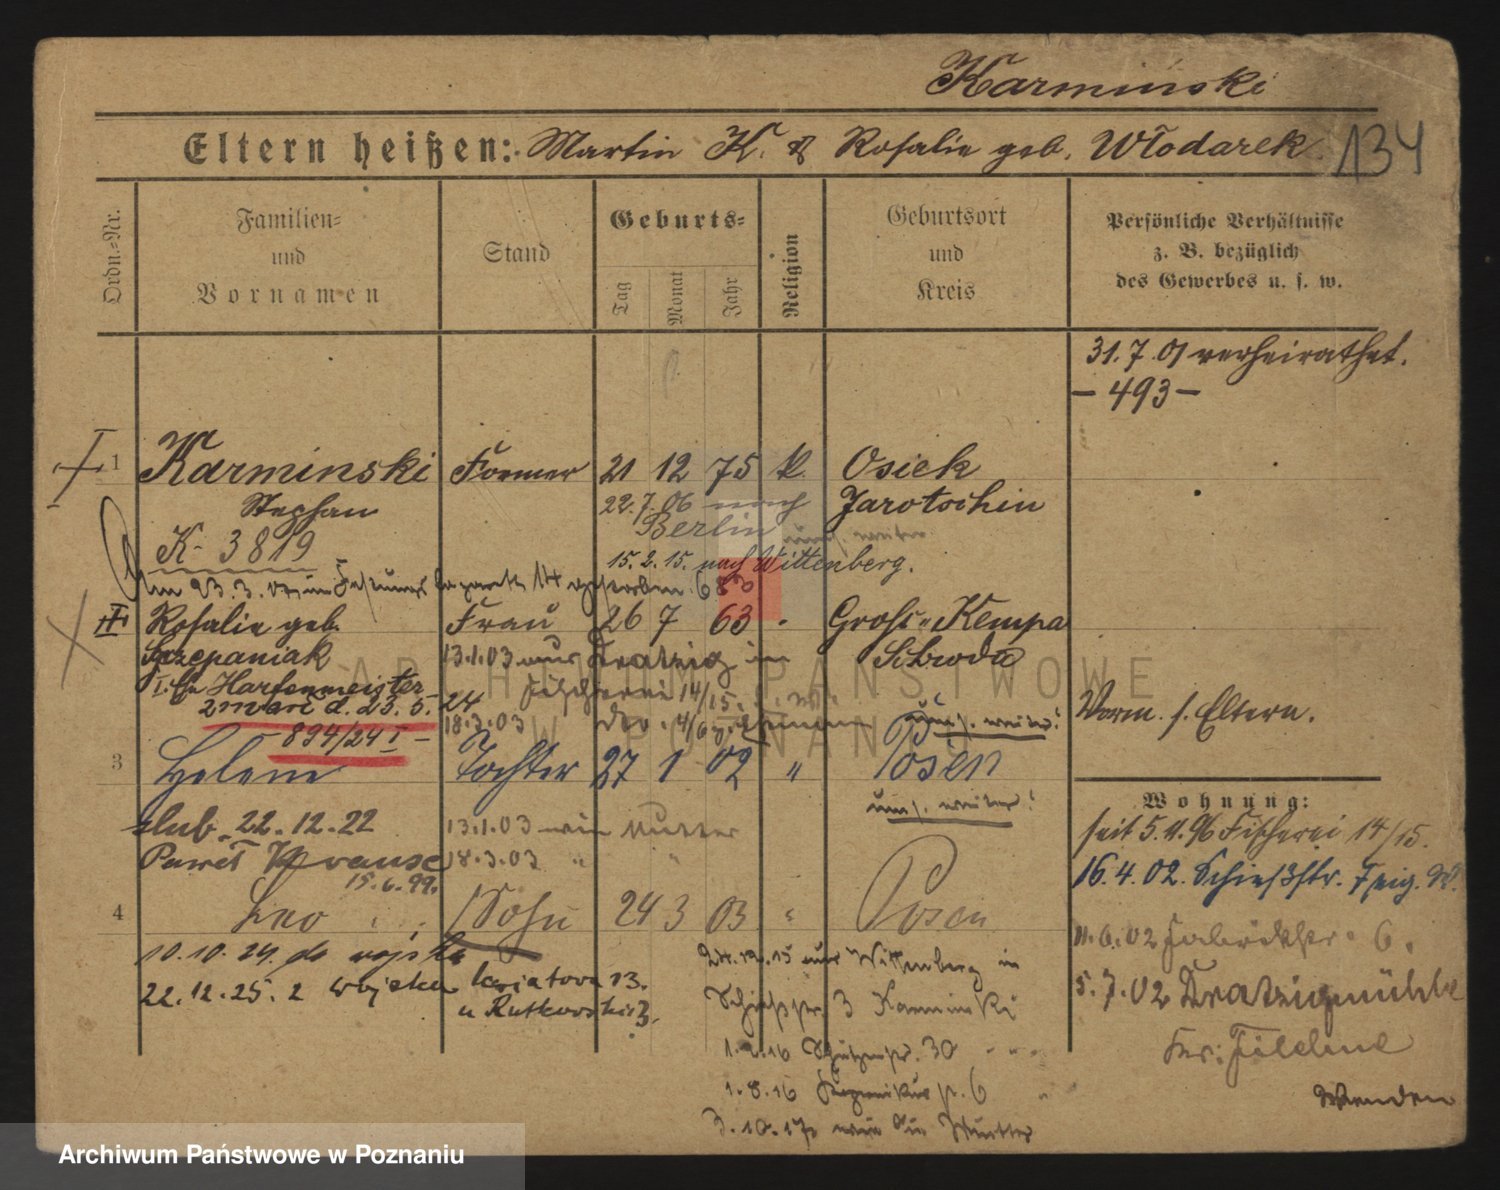 Karmiński
Eltern heißen: Martin K. & Rosalie geb. Włodarek.
134
Ordn.-Nr.
Familien- und Vornamen
Stand
Geburts-
Tag
Monat
Jahr
Religion
Geburtsort und Kreis
Persönliche Verhältnisse
z. B. bezüglich
des Gewerbes u. s. w.
31.7.01 verheirathet.
– 493 –
1 Karminski Former 21 12 75 k. Osiek
Stephan 22.7.06 nach Jarotschin
Berlin
K- 3819
15.2.15. nach Wittenberg.
gestorben 683
Rosalie geb. Frau 26 7 63 Gross-Kempa
Szczepaniak 13.1.03 aus Kratzig in Schroda
Harfenmeister Fischerei 14/15.
zmarł d. 23.5.24
18.3.03
894/24 I –
3 Helene Tochter 27 1 02 " Posen
umst. weiter!
ślub. 22.12.22 13.1.03 wie Mutter
Paweł Krause 18.3.03 " "
15.6.99.
4 Leo Sohn 24 3 03 " Posen
10.10.24. do wojska
22.12.25. z wojska
Kwiatowa 13.
u Rutkowskiej.
24.12.15 aus Wittenberg in
Schießstr. 3 Karminski
1.2.16 Schützenstr. 30
1.8.16 6
3.10.17 wie die Mutter
Vorm. s. Eltern.
Wohnung:
seit 5.11.96 Fischerei 14/15.
16.4.02. Schießstr. 7
11.6.02 Fabrikstr. 6.
5.7.02 Kratzigmühle
Kr: Filehne
Wenden
ARCHIWUM PAŃSTWOWE
W POZNANIU
Archiwum Państwowe w Poznaniu